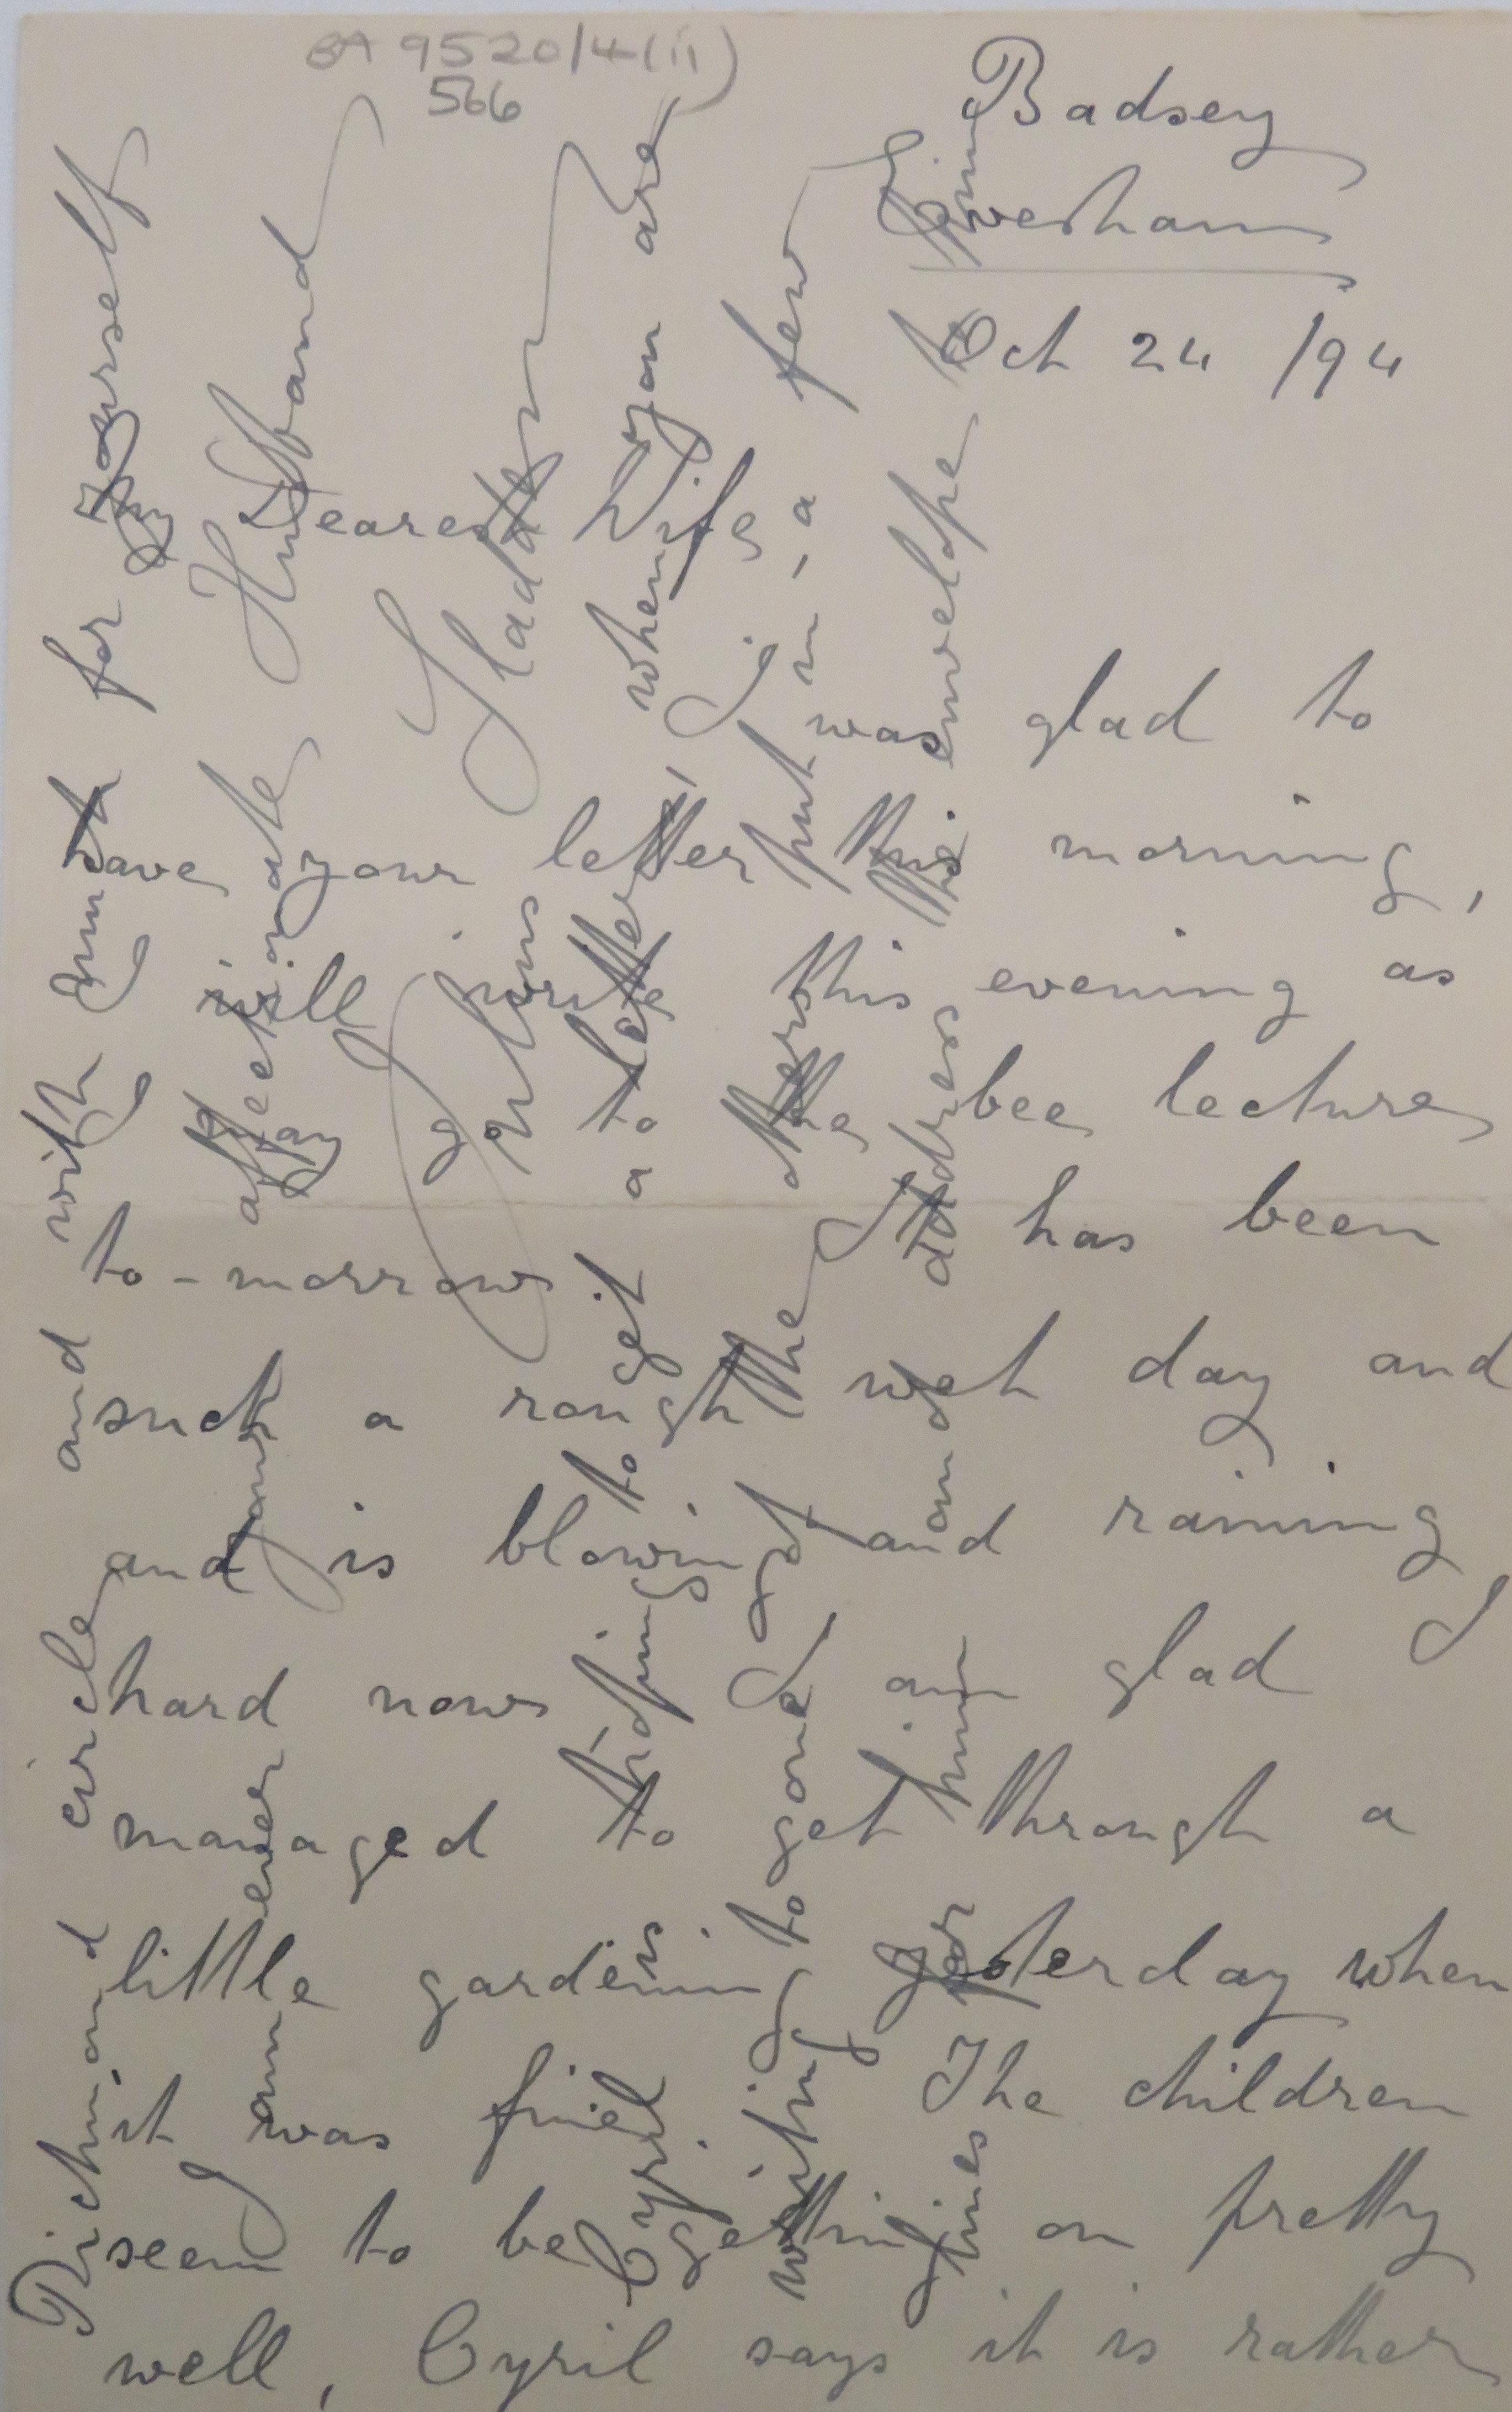 BA 9520/4(ii)
566
Badsey
Evesham
Oct 24 /94
My Dearest Wife
I was glad to
have your letter this morning,
I will write this evening as
I may go to the bee lecture
to-morrow It has been
such a rough wet day and
and is blowing and raining
hard now I am glad I
managed to get through a
little gardening yesterday when
it was fine The children
seem to be getting on pretty
well, Cyril says it is rather
Richmond circle and with much for yourself
I am ever your affectionate Husband
Julius Sladden
Cyril is hoping to get a letter, when you are
writing to one of the others put in a few
lines for him and address the envelope to him